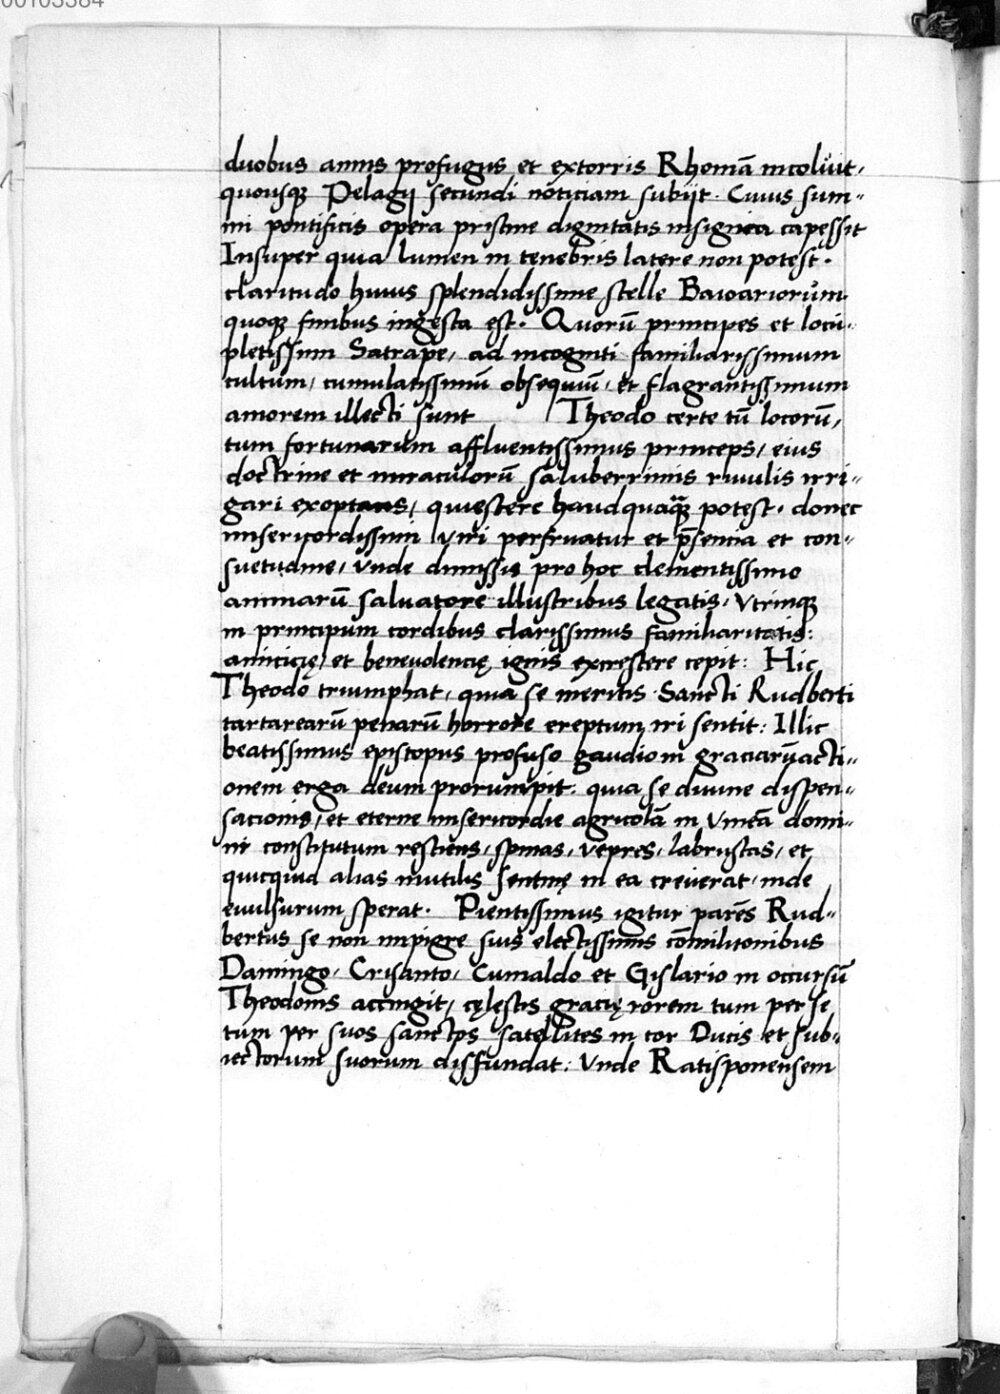 00103384
duobus annis profugus et extorris Rhomā incoluit,
quousq; Pelagij secundi noticiam subijt. Cuius sum=
mi pontificis opera pristine dignitatis insignia capessit
Insuper quia lumen in tenebris latere non potest.
claritudo huius splendidissime stelle Bawariorum
quoq; finibus ingesta est. Quorū principes et locu=
pletissim Satrape, ad incogniti familiarissimum
cultum, cumulatissimū obsequiū, et flagrantissimum
amorem illecti sunt / Theodo certe tū locorū,
tum fortunarum affluentissimus princeps, eius
doctrine et miraculorū saluberrimis riuulis irri=
gari exoptans, quiescere haudquaq̄ potest. donec
misericordissimi viri perfruatur et p̄sencia et con=
suetudine, vnde dimissis pro hoc clementissimo
animarū saluatore illustribus legatis, vtrinq;
in principum cordibus clarissimus familiaritatis:
amicicię, et beneuolencię ignis excrescere cepit: Hic
Theodo triumphat, quia se meritis Sancti Rudberti
tartarearū penarū horrore ereptum iri sentit: Illic
beatissimus episcopus profuso gaudio in graciarū acti=
onem erga deum prorumpit: quia se diuine dispen=
sacionis, et eterne misericordie agricolā in vineā domi=
ni constitutum resciens, spinas, vepres, labruscas, et
quicquid alias inutilis sentinę in ea creuerat, inde
euulsurum sperat. Pientissimus igitur parēs Rud=
bertus se non impigre suis electissimis cōmilitonibus
Damingo, Crisanto, Cumaldo et Gislario in occursū
Theodonis accingit, cęlestis gracię rorem tum per se
tum per suos sanctos satellites in cor Ducis et sub=
iectorum suorum diffundat: Vnde Ratisponensem